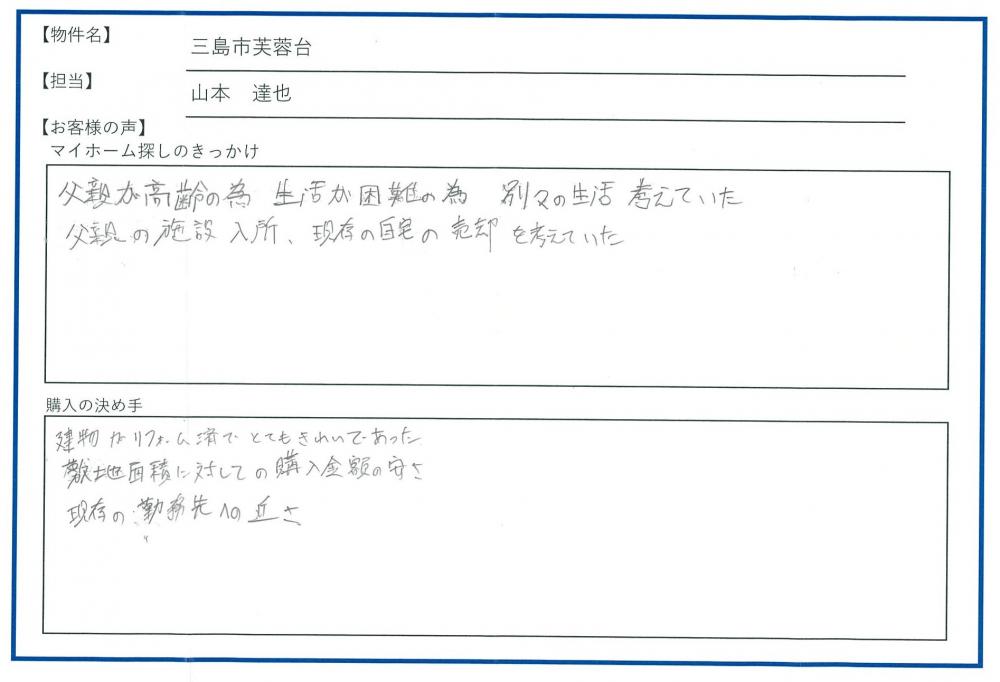 【物件名】
三島市芙蓉台
【担当】
山本　達也
【お客様の声】
マイホーム探しのきっかけ
父親が高齢の為 生活が困難の為 別々の生活 考えていた
父親の施設入所、現存の自宅の売却を考えていた
購入の決め手
建物がリフォーム済で とてもきれいであった
敷地面積に対しての購入金額の安さ
現存の勤務先への近さ